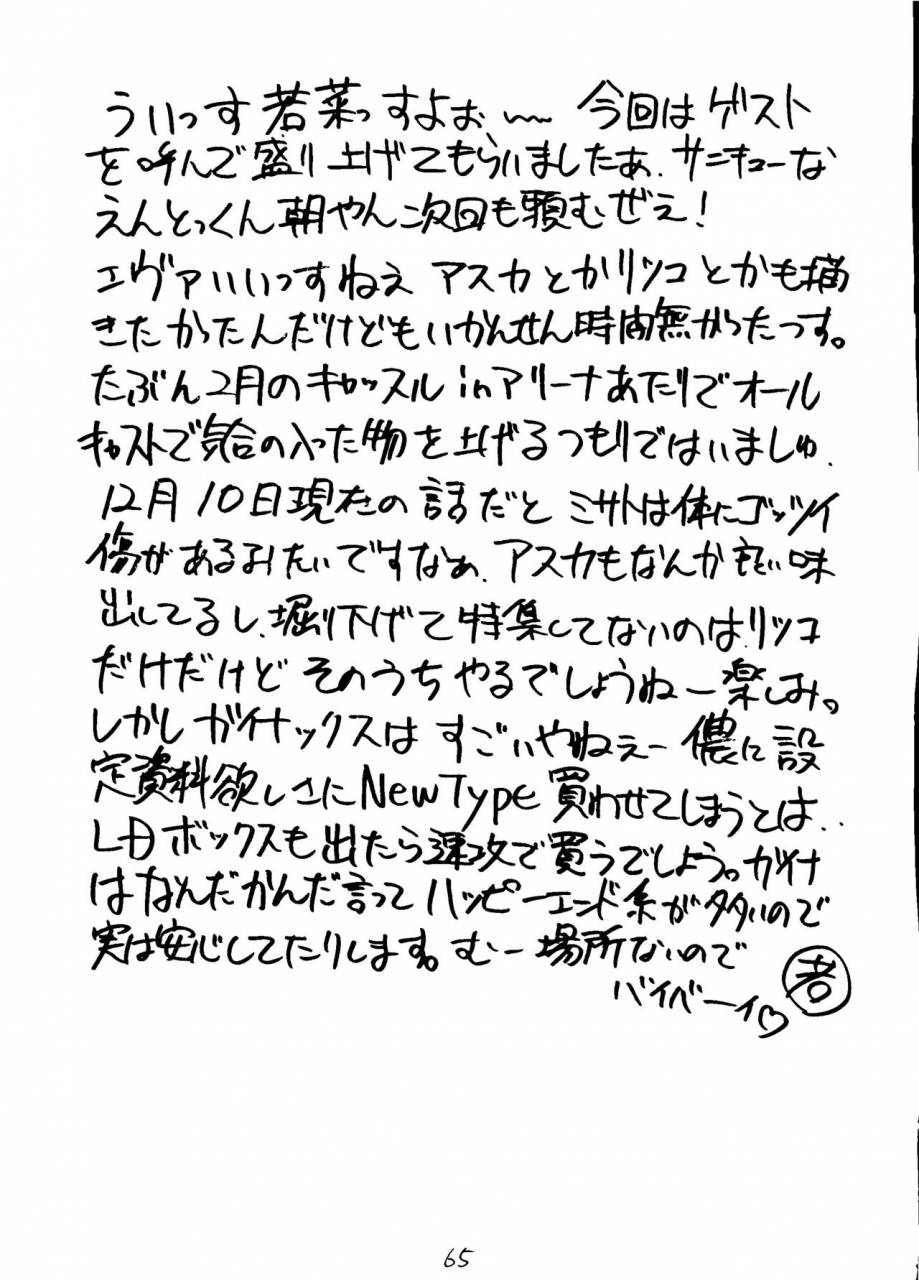 ういっす 若菜っすよぉ〜 今回は ゲスト
を呼んで盛り上げてもらいましたぁ、サンキューな
えんとっくん朝やん次回も頼むぜえ!
エヴァいいっすねえ アスカとかリツコとかも描
きたかったんだけどもいかんせん時間無かったっす。
たぶん2月のキャッスルinアリーナあたりでオール
キャストで気合の入った物を上げるつもりではいましゅ.
12月10日現在の話だと ミサトは体にゴッツイ
傷があるみたいですなぁ、アスカもなんか良い味
出してるし、堀り下げて特集してないのはリツコ
だけだけど そのうちやるでしょうねー楽しみ。
しかしガイナックスは すごいやねぇー 儂に設
定資料欲しさにNewType買わせてしまうとは..
LDボックスも出たら速攻で買うでしょう。ガイナ
はなんだかんだ言って ハッピーエンド系が多いので
実は安心してたりします。むー 場所ないので
バイバーイ♡ 若
65